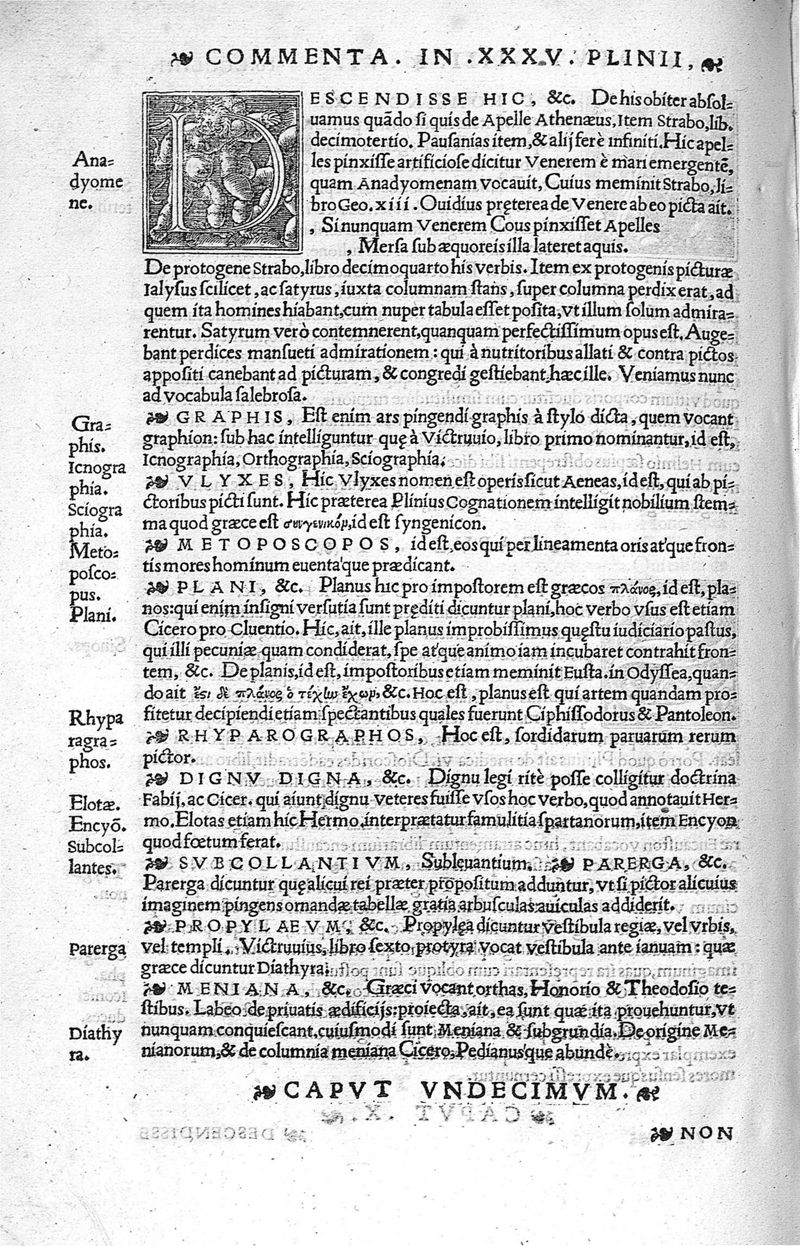 COMMENTA. IN .XXXV. PLINII,
DESCENDISSE HIC, &c. De his obiter absol=
uamus quãdo si quis de Apelle Athenæus, Item Strabo, lib.
decimotertio. Pausanías item, & alij ferè infiniti. Hic apel=
les pinxisse artificiose dicitur Venerem è mari emergentẽ,
quam Anadyomenam vocauit, Cuius meminit Strabo, li=
bro Geo. xiii. Ouidius pręterea de Venere ab eo picta ait.
, Si nunquam Venerem Cous pinxisset Apelles
, Mersa sub æquoreis illa lateret aquis.
Ana=
dyome
ne.
De protogene Strabo, libro decimoquarto his verbis. Item ex protogenis picturæ
Ialysus scilicet, ac satyrus, iuxta columnam stans, super columna perdix erat, ad
quem ita homines hiabant, cum nuper tabula esset posita, vt illum solum admira=
rentur. Satyrum verò contemnerent, quanquam perfectissimum opus est. Auge=
bant perdices mansueti admirationem: qui à nutritoribus allati & contra pictos
appositi canebant ad picturam, & congredi gestiebant, hæc ille. Veniamus nunc
ad vocabula salebrosa.
GRAPHIS, Est enim ars pingendi graphis à stylo dicta, quem vocant
graphion: sub hac intelliguntur quę à Victruuio, libro primo nominantur, id est,
Icnographia, Orthographia, Sciographia.
Gra=
phis.
Icnogra
phia.
Sciogra
phia.
VLYXES, Hic Vlyxes nomen est operis sicut Aeneas, id est, qui ab pi=
ctoribus picti sunt. Hic præterea Plinius Cognationem intelligit nobilium stem=
ma quod græce est συγγενικόν, id est syngenicon.
METOPOSCOPOS, id est, eos qui per lineamenta oris atq́ue fron=
tis mores hominum euentaq́ue prædicant.
Meto=
posco=
pus.
PLANI, &c. Planus hic pro impostorem est græcos πλάνος, id est, pla=
nos: qui enim insigni versutia sunt pręditi dicuntur plani, hoc verbo vsus est etiam
Cicero pro Cluentio. Hic, ait, ille planus improbissimus quęstu iudiciario pastus,
qui illi pecuniæ quam condiderat, spe atq́ue animo iam incubaret contrahit fron=
tem, &c. De planis, id est, impostoribus etiam meminit Eusta. in Odyssea, quan=
do ait ἔστι δὲ πλάνος ὁ τέχνην ἔχων, &c. Hoc est, planus est qui artem quandam pro=
fitetur decipiendi etiam spectantibus quales fuerunt Ciphissodorus & Pantoleon.
Plani.
RHYPAROGRAPHOS, Hoc est, sordidarum paruarum rerum
pictor.
Rhypa
ragra=
phos.
DIGNV DIGNA, &c. Dignu legi ritè posse colligitur doctrina
Fabij, ac Cicer. qui aiunt dignu veteres fuisse vsos hoc verbo, quod annotauit Her=
mo. Elotas etiam hic Hermo. interprætatur famulitia spartanorum, item Encyon
quod fœtum ferat.
Elotæ.
Encyõ.
SVBCOLLANTIVM, Subleuantium. PARERGA, &c.
Parerga dicuntur quę alicui rei præter propositum adduntur, vt si pictor alicuius
imaginem pingens ornandæ tabellæ gratia arbusculas auiculas addiderit.
Subcol=
lantes.
PROPYLAEVM, &c. Propylęa dicuntur vestibula regiæ, vel vrbis,
vel templi. Victruuius, libro sexto, protyra vocat vestibula ante ianuam: quæ
græce dicuntur Diathyra.
Parerga
MENIANA, &c. Græci vocant orthas, Honorio & Theodosio te=
stibus. Labeo de priuatis ædificijs: proiecta, ait, ea sunt quæ ita prouehuntur, vt
nunquam conquiescant, cuiusmodi sunt Meniana & subgrundia. De origine Me=
nianorum, & de columnia meniana Cicero, Pedianusq́ue abundè.
Diathy
ra.
CAPVT VNDECIMVM.
NON